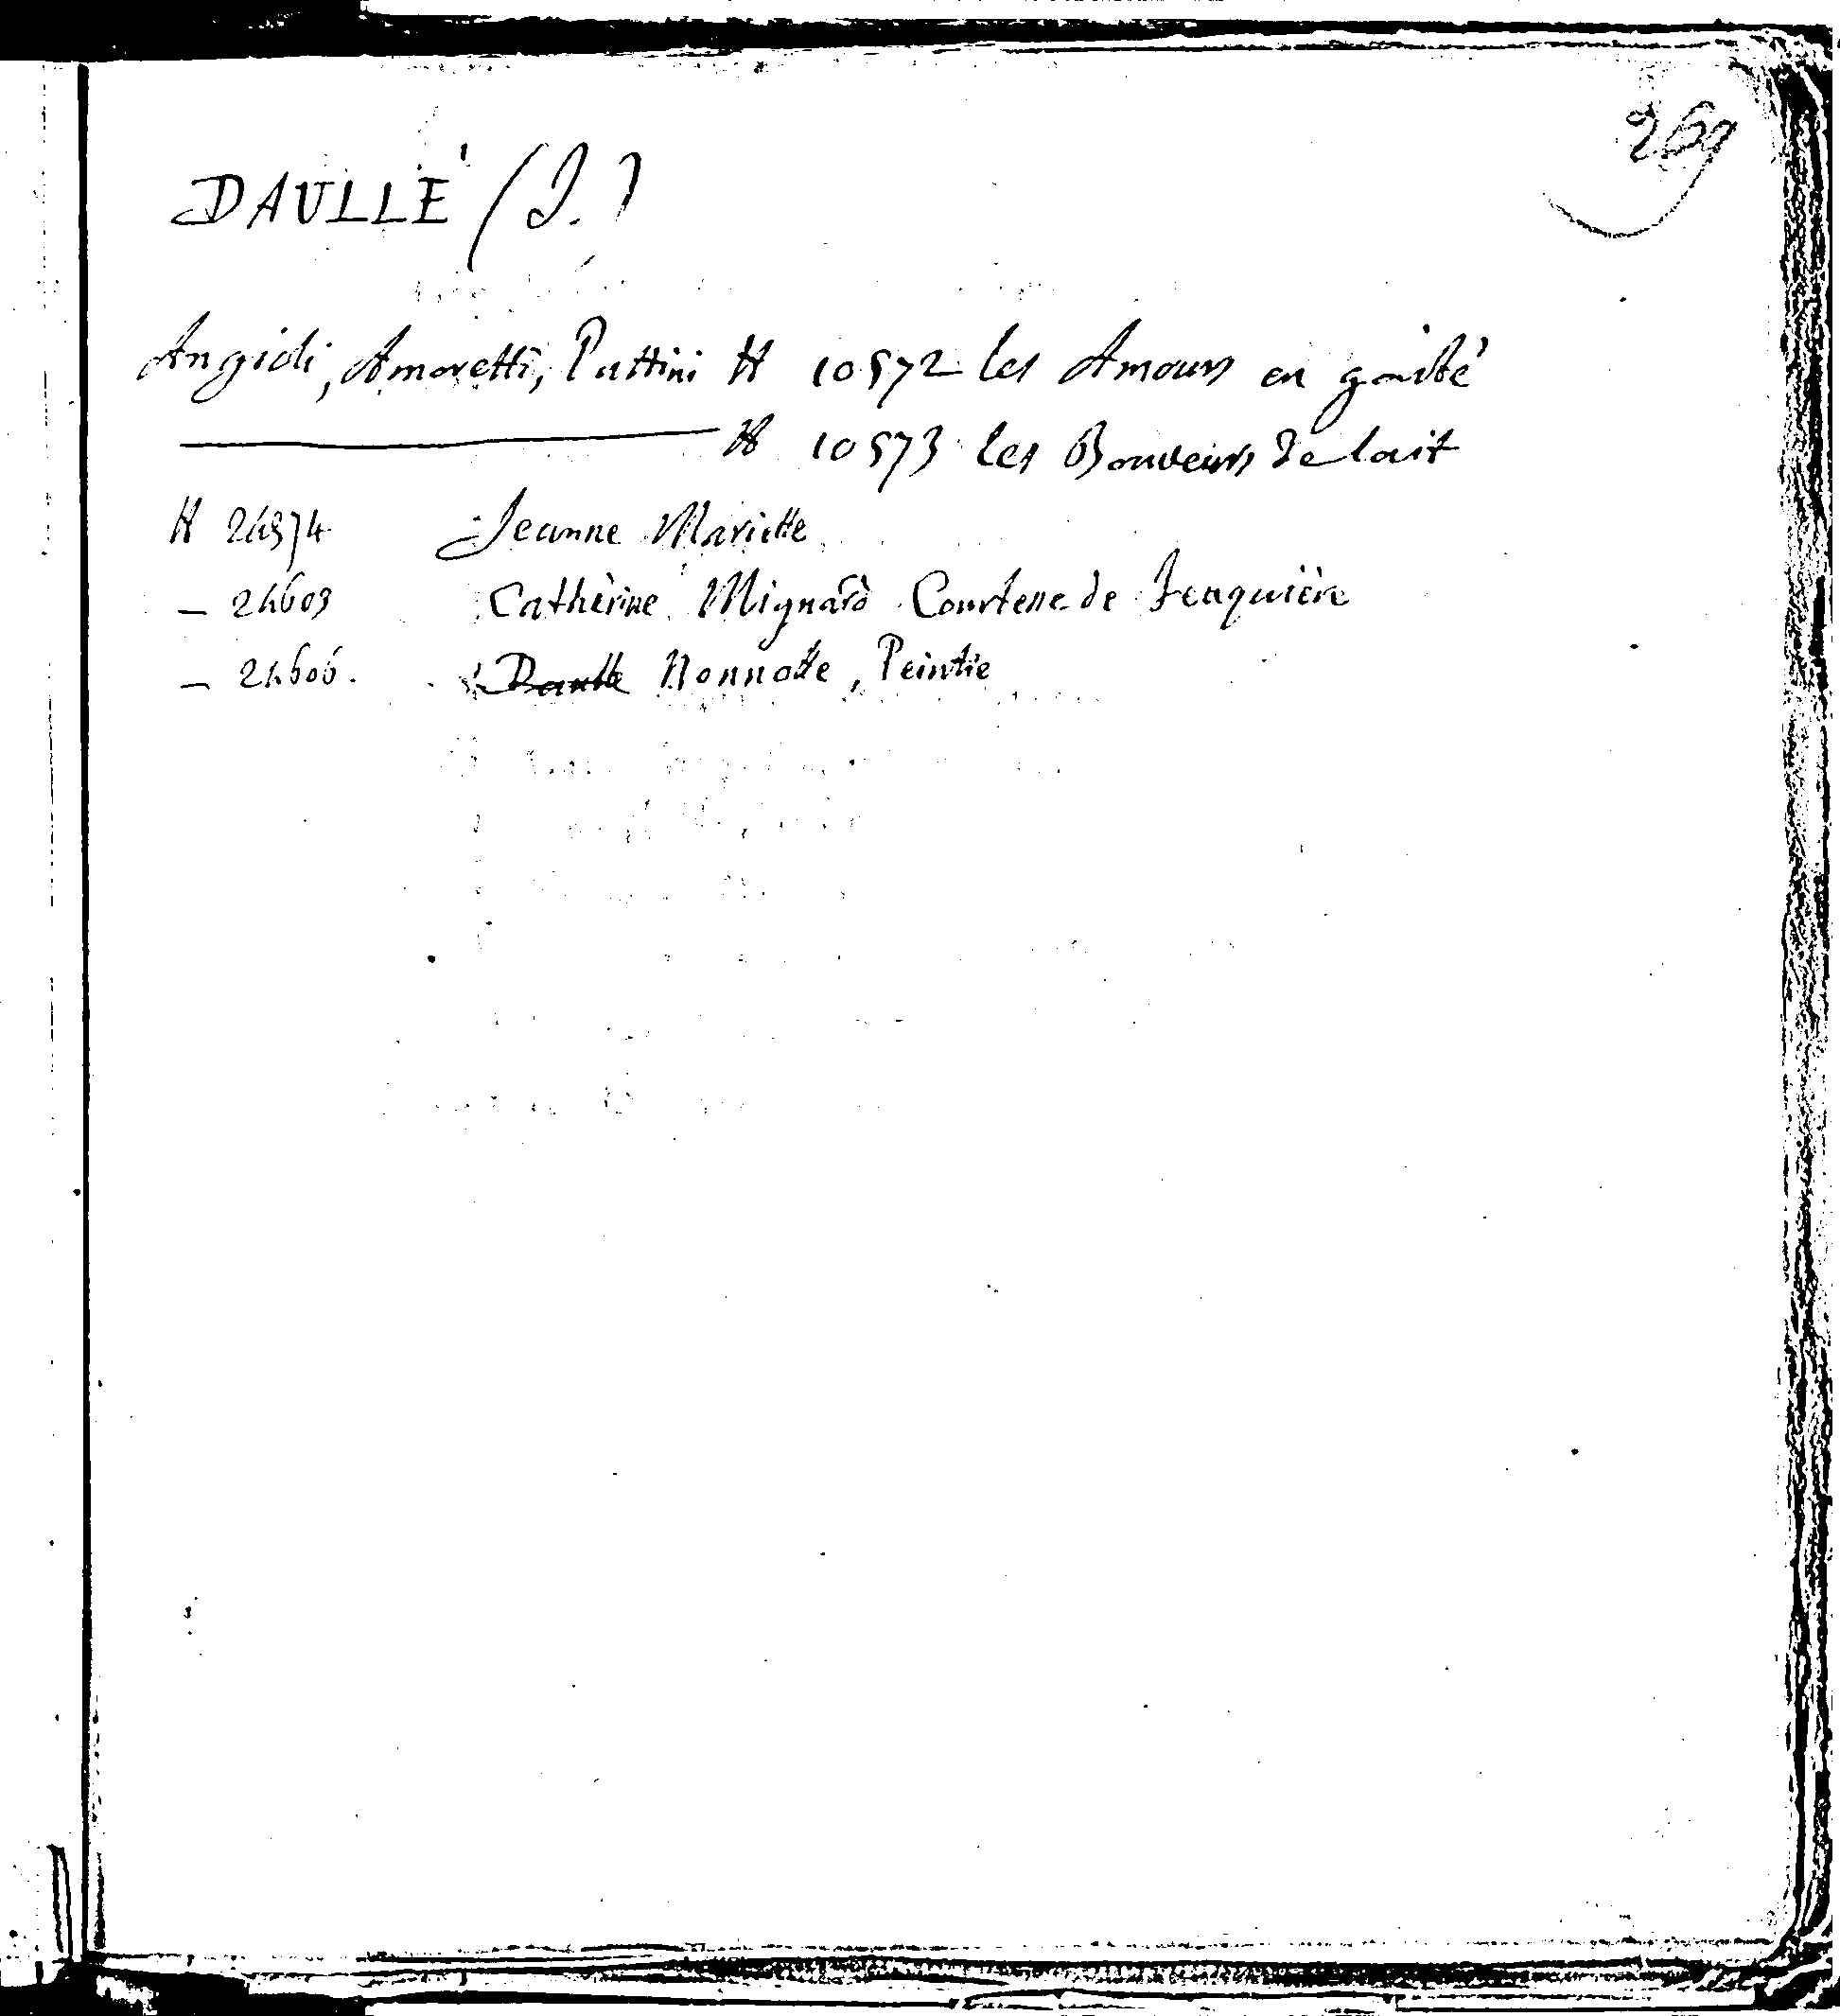 269
DAULLÉ (J.)
Angioli, Amoretti, Puttini H 10572 les Amours en gaité
H 10573 les Bouveurs de lait
H 24574 Jeanne Mariette
— 24603 Catherine Mignard Comtesse de Feuquière
— 24606. Daullé Nonnotte, Peintre